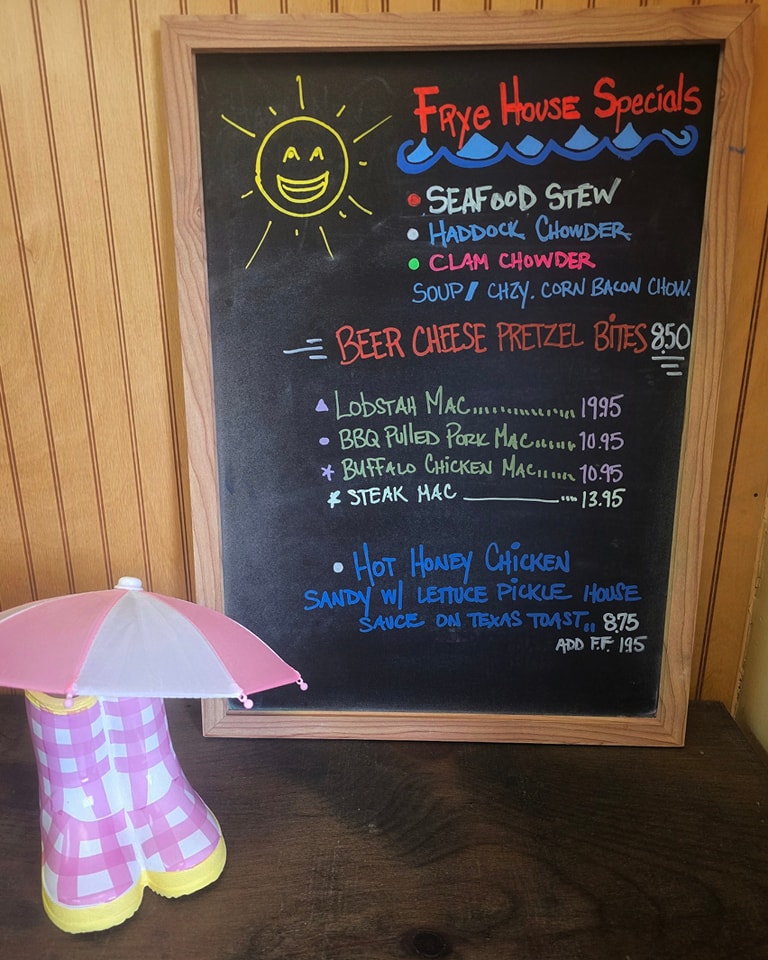 Frye House Specials
• SEAFOOD STEW
• HADDOCK CHOWDER
• CLAM CHOWDER
SOUP/ CHZY. CORN BACON CHOW.
BEER CHEESE PRETZEL BITES 8.50
LOBSTAH MAC............ 19.95
• BBQ PULLED PORK MAC...... 10.95
* BUFFALO CHICKEN MAC...... 10.95
* STEAK MAC ________... 13.95
• HOT HONEY CHICKEN
SANDY W/ LETTUCE PICKLE HOUSE
SAUCE ON TEXAS TOAST.. 8.75
ADD F.F. 1.95